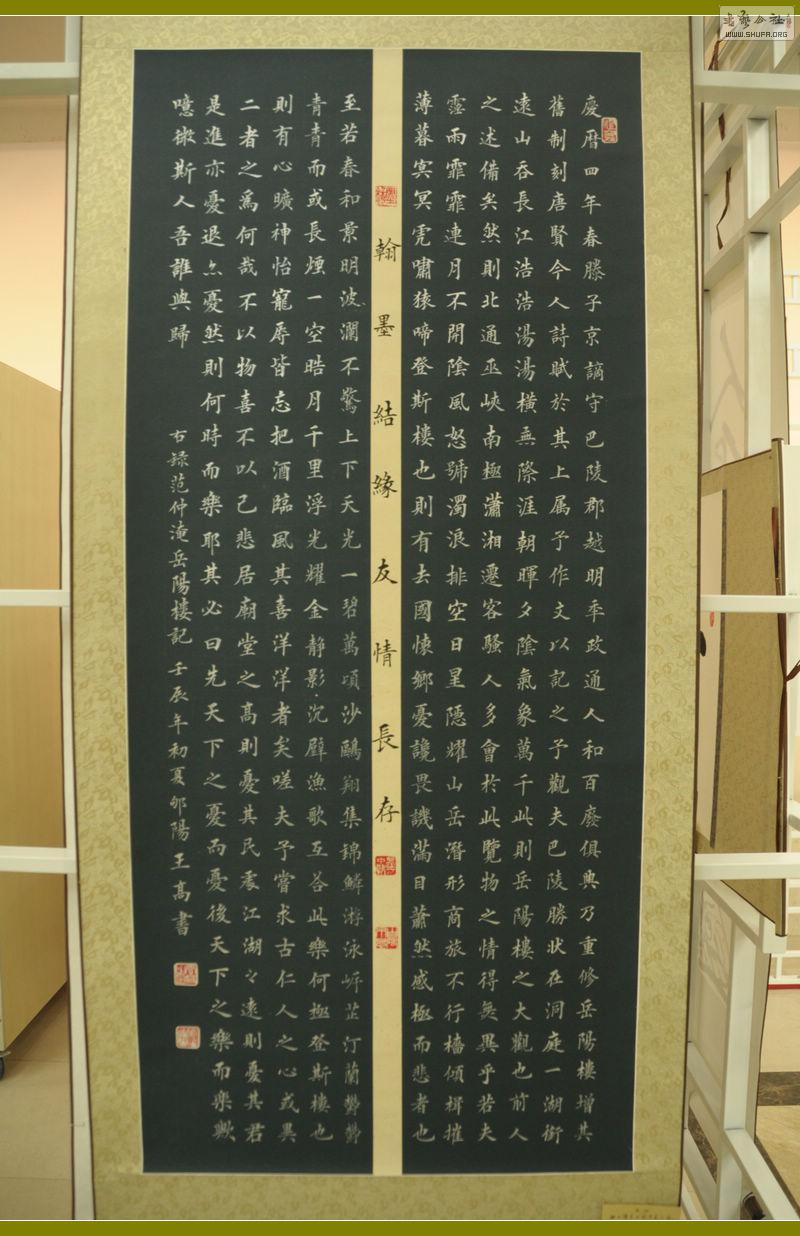 慶曆四年春滕子京謫守巴陵郡越明年政通人和百廢俱興乃重修岳陽樓增其
舊制刻唐賢今人詩賦於其上属予作文以記之予觀夫巴陵勝狀在洞庭一湖銜
遠山吞長江浩浩湯湯橫無際涯朝暉夕陰氣象萬千此則岳陽樓之大觀也前人
之述備矣然則北通巫峽南極瀟湘遷客騷人多會於此覽物之情得無異乎若夫
霪雨霏霏連月不開陰風怒號濁浪排空日星隱耀山岳潛形商旅不行檣傾楫摧
薄暮冥冥虎嘯猿啼登斯樓也則有去國懷鄉憂讒畏譏滿目蕭然感極而悲者也
翰墨結緣友情長存
至若春和景明波瀾不驚上下天光一碧萬頃沙鷗翔集錦鱗游泳岸芷汀蘭鬱鬱
青青而或長煙一空皓月千里浮光耀金静影沉璧漁歌互答此樂何極登斯樓也
則有心曠神怡寵辱皆忘把酒臨風其喜洋洋者矣嗟夫予嘗求古仁人之心或異
二者之為何哉不以物喜不以己悲居廟堂之高則憂其民處江湖之遠則憂其君
是進亦憂退亦憂然則何時而樂耶其必曰先天下之憂而憂後天下之樂而樂歟
噫微斯人吾誰與歸
右錄范仲淹岳陽樓記 壬辰年初夏陽王高書
書藝公社
WWW.SHUFA.ORG